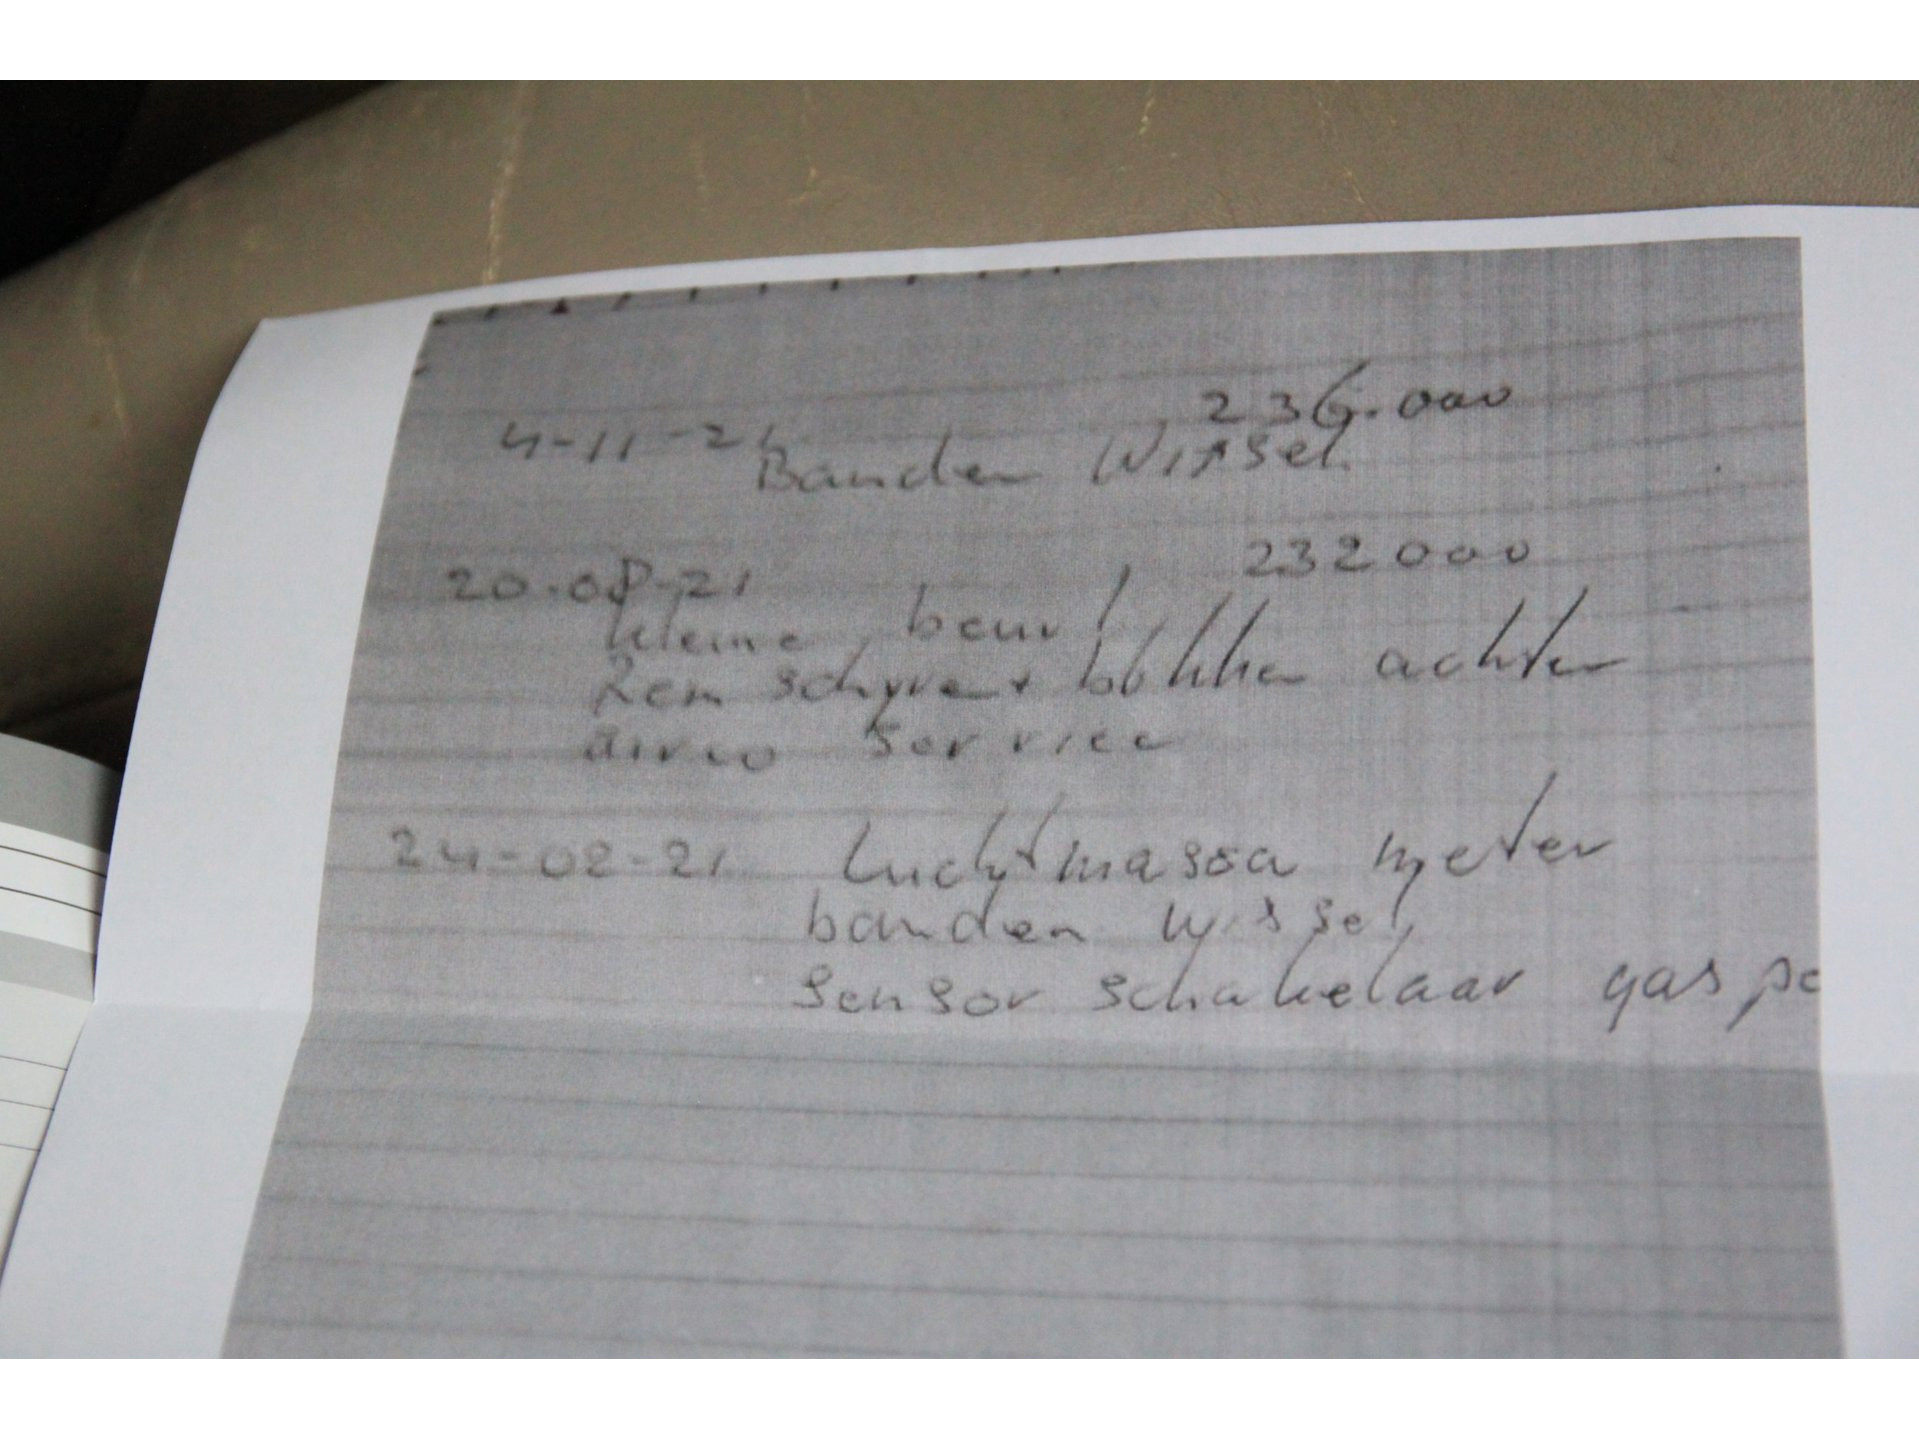 4-11-21 236.000
Banden Wissel
20.08-21 232000
kleine beurt
Rem schyven + blokken achter
airco Service
24-02-21 Luchtmassa meter
banden wissel
sensor schakelaar gas pe